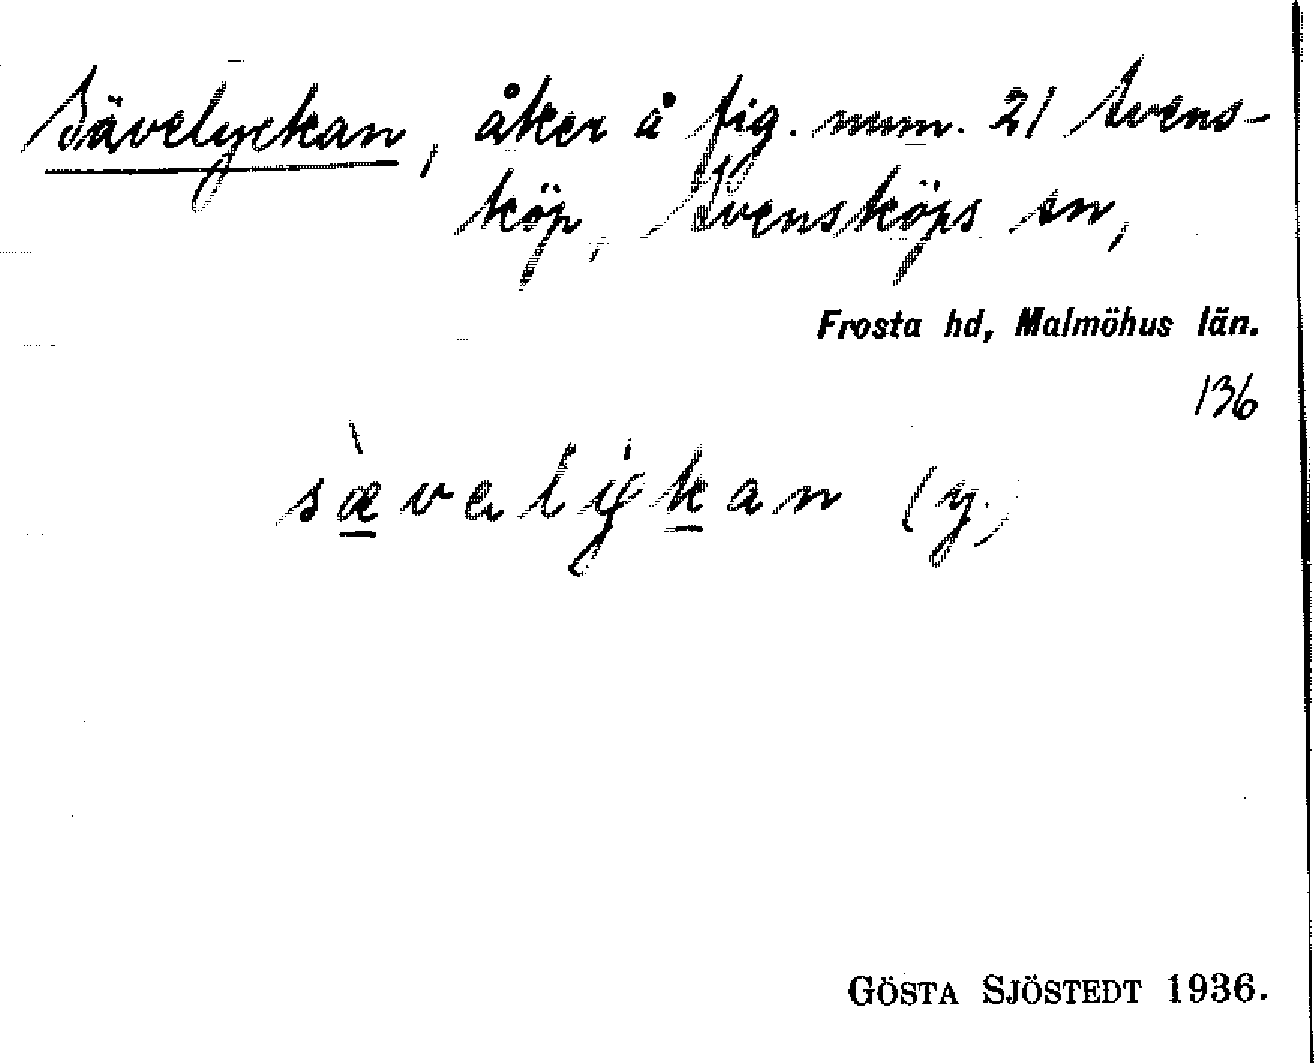 Sävelyckan, åker å fig. num. 21 Svens-
köp, Svensköps sn,
Frosta hd, Malmöhus län.
136
sæ̀velykan (y.)
GÖSTA SJÖSTEDT 1936.